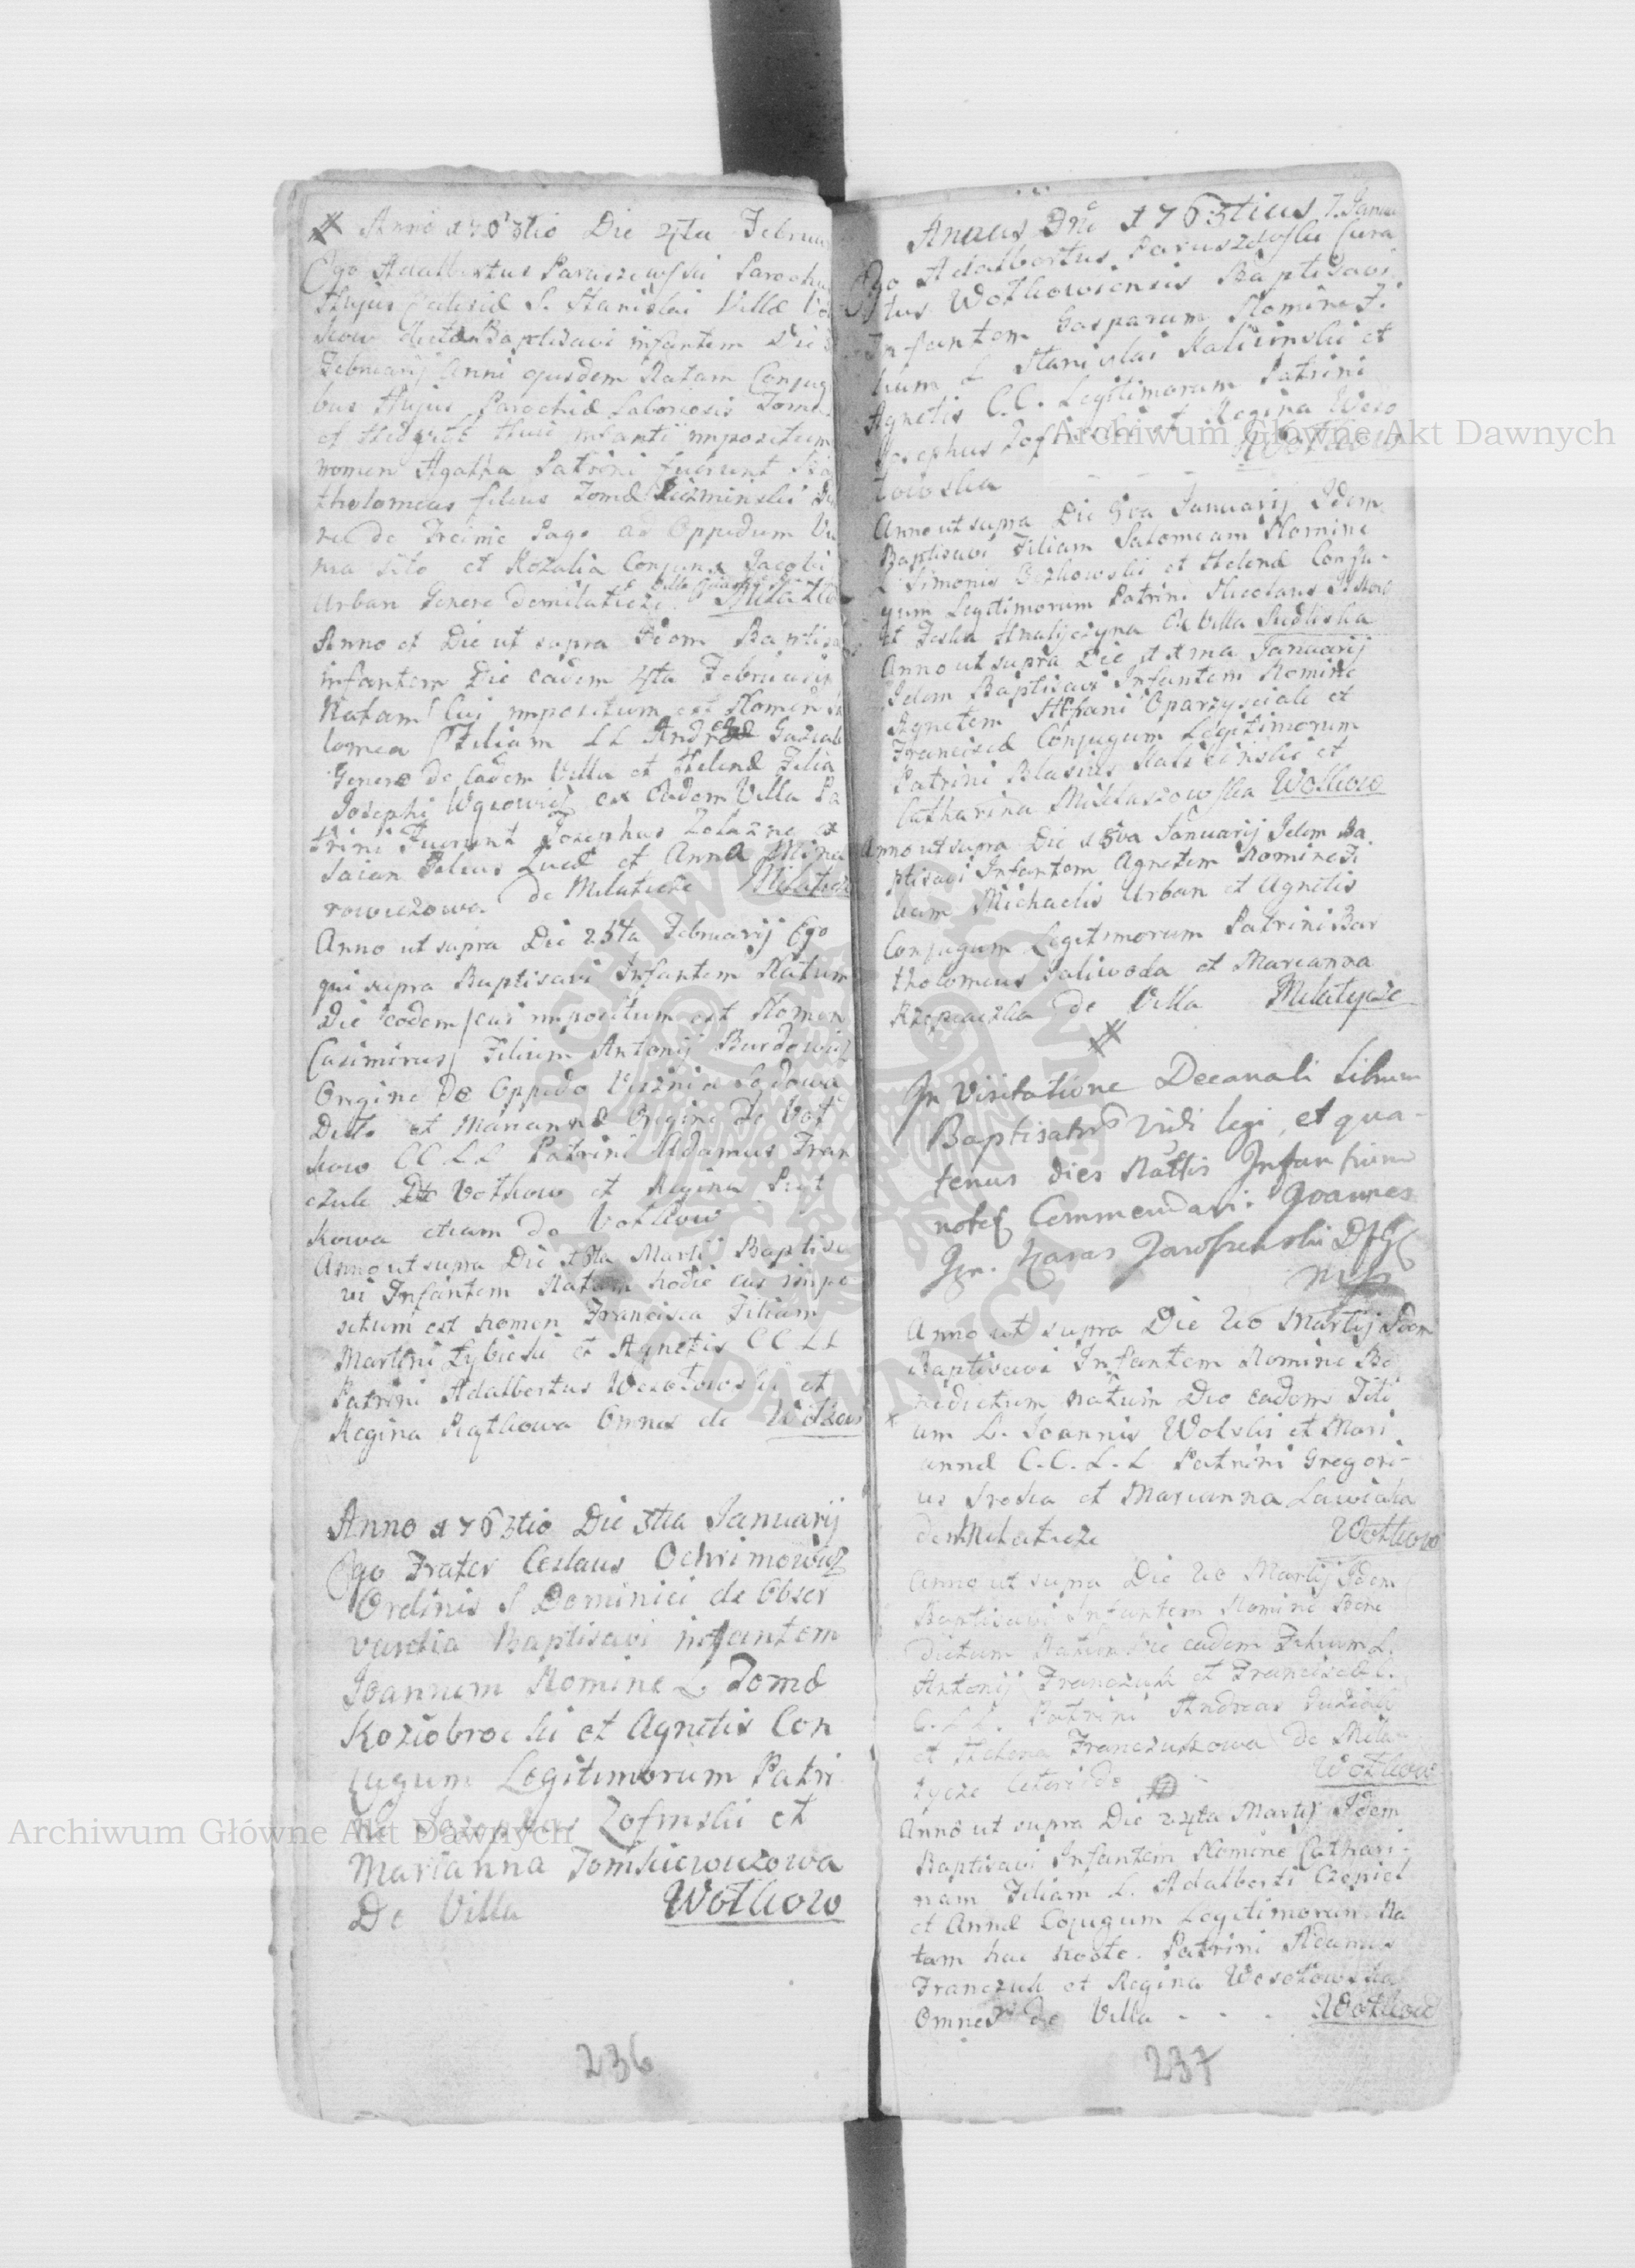 Anno 1763tio Die 4ta Februa
Ego Adalbertus Paruszewski Parochus
Hujus Ecclesiæ S. Stanislai Villæ Vo
kow dictæ Baptisavi infantem Die
Februarij Anni ejusdem Natam Conjug
bus Hujus Parochiæ Laboriosis Tomæ
et Hedvige Huic infanti impositum
nomen Agatha Patrini fuerunt Bar
tholomeus filius Tomæ
re de Pago ad Oppidum Vis
nia sito et Rozalia Conjunx Jacobi
Urban Genere de Milaticze
Anno et Die ut supra Idem Baptisa
infantem Die eadem 4ta Februarij
Natam cui impositum est Nomen Sa
lomea Filiam LL Andreæ
Genere de eadem Villa et Helenæ Filia
Josephi ex eadem Villa Pa
trini Fuerunt Josephus et
Filius Lucæ et Anna
de Milaticze Milaticze
Anno ut supra Die 25ta Februarij Ego
qui supra Baptisavi Infantem Natum
Die eodem cui impositum est Nomen
Casimirus Filium Antonij Burdowicz
Origine de Oppido Visznia Sądowa
Dicto et Mariannæ Origine de Vot
kow CC LL Patrini Adamus Fran
czuk De Votkow et Regina Piąt
kowa etiam de Votkow
Anno ut supra Die 13ta Martij Baptisa
vi Infantem Natam hodie cui impo
situm est Nomen Francisca Filiam
Martini et Agnetis CC LL
Patrini Adalbertus Wesołowski et
Regina Piątkowa Omnes de Wotkow
Anno 1763tio Die 3tia Januarij
Ego Frater Ceslaus Ochrimowicz
Ordinis S Dominici de Obser
vantia Baptisavi infantem
Joannem Nomine L. Tomæ
Koziobrocki et Agnetis Con
jugum Legitimorum Patri
ni Josephus Zofinski et
Marianna Tomkiewiczowa
De Villa Wotkow
236
Annus Dni 1763tius 7. Janua
Ego Adalbertus Paruszewski Cura
tus Wotkowiensis Baptisavi
Infantem Gasparum Nomine Fi
lium L Stanislai Kalicinski et
Agnetis C.C. Legitimorum Patrini
Josephus Zofinski et Regina Weso
łowska Wotkow
Anno ut supra Die 9va Januarij Idem
Baptisavi Filiam Salomeam Nomine
L Simonis et Helenæ Conju-
gum Legitimorum Patrini Nicolaus
et Ex Villa Siedliska
Anno ut supra Die 11ma Januarij
Idem Baptisavi Infantem Nomine
Agnetem Stephani et
Franciscæ Conjugum Legitimorum
Patrini Blasius Kalicinski et
Catharina Wotkow
Anno ut supra Die 18va Januarij Idem Ba
ptisavi Infantem Agnetem Nomine Fi
liam Michaelis Urban et Agnetis
Conjugum Legitimorum Patrini Bar
tholomeus Saliwoda et Marianna
Rzepiaczka de Villa Milatycze
In Visitatione Decanali Librum
Baptisator vidi legi, et qua-
tenus dies Nattis Infantium
notet Commendavi. Joannes
Anno ut supra Die 20 Martij Idem
Baptisavi Infantem Nomine Be
nedictum natum Die eadem Fili
um L. Joannis Wolski et Mari
annæ C.C.L.L Patrini Gregori-
us Sroka et Marianna
de Milaticze Wotkow
Anno ut supra Die 20 Martij Idem
Baptisavi Infantem Nomine Bene
dictum Natum Die eadem Filium L.
Antonij Franczuk et Franciscæ C.
C.L.L. Patrini Andreas
et Helena Franczukowa de Mila-
tycze Wotkow
Anno ut supra Die 24ta Martij Idem
Baptisavi Infantem Nomine Cathari-
nam Filiam L. Adalberti Czopiel
et Annæ Cojugum Legitimorum Na
tam hac nocte. Patrini Adamus
Franczuk et Regina Wesołowska
Omnes de Villa - - - Wotkow
237
Archiwum Główne Akt Dawnych
Archiwum Główne Akt Dawnych